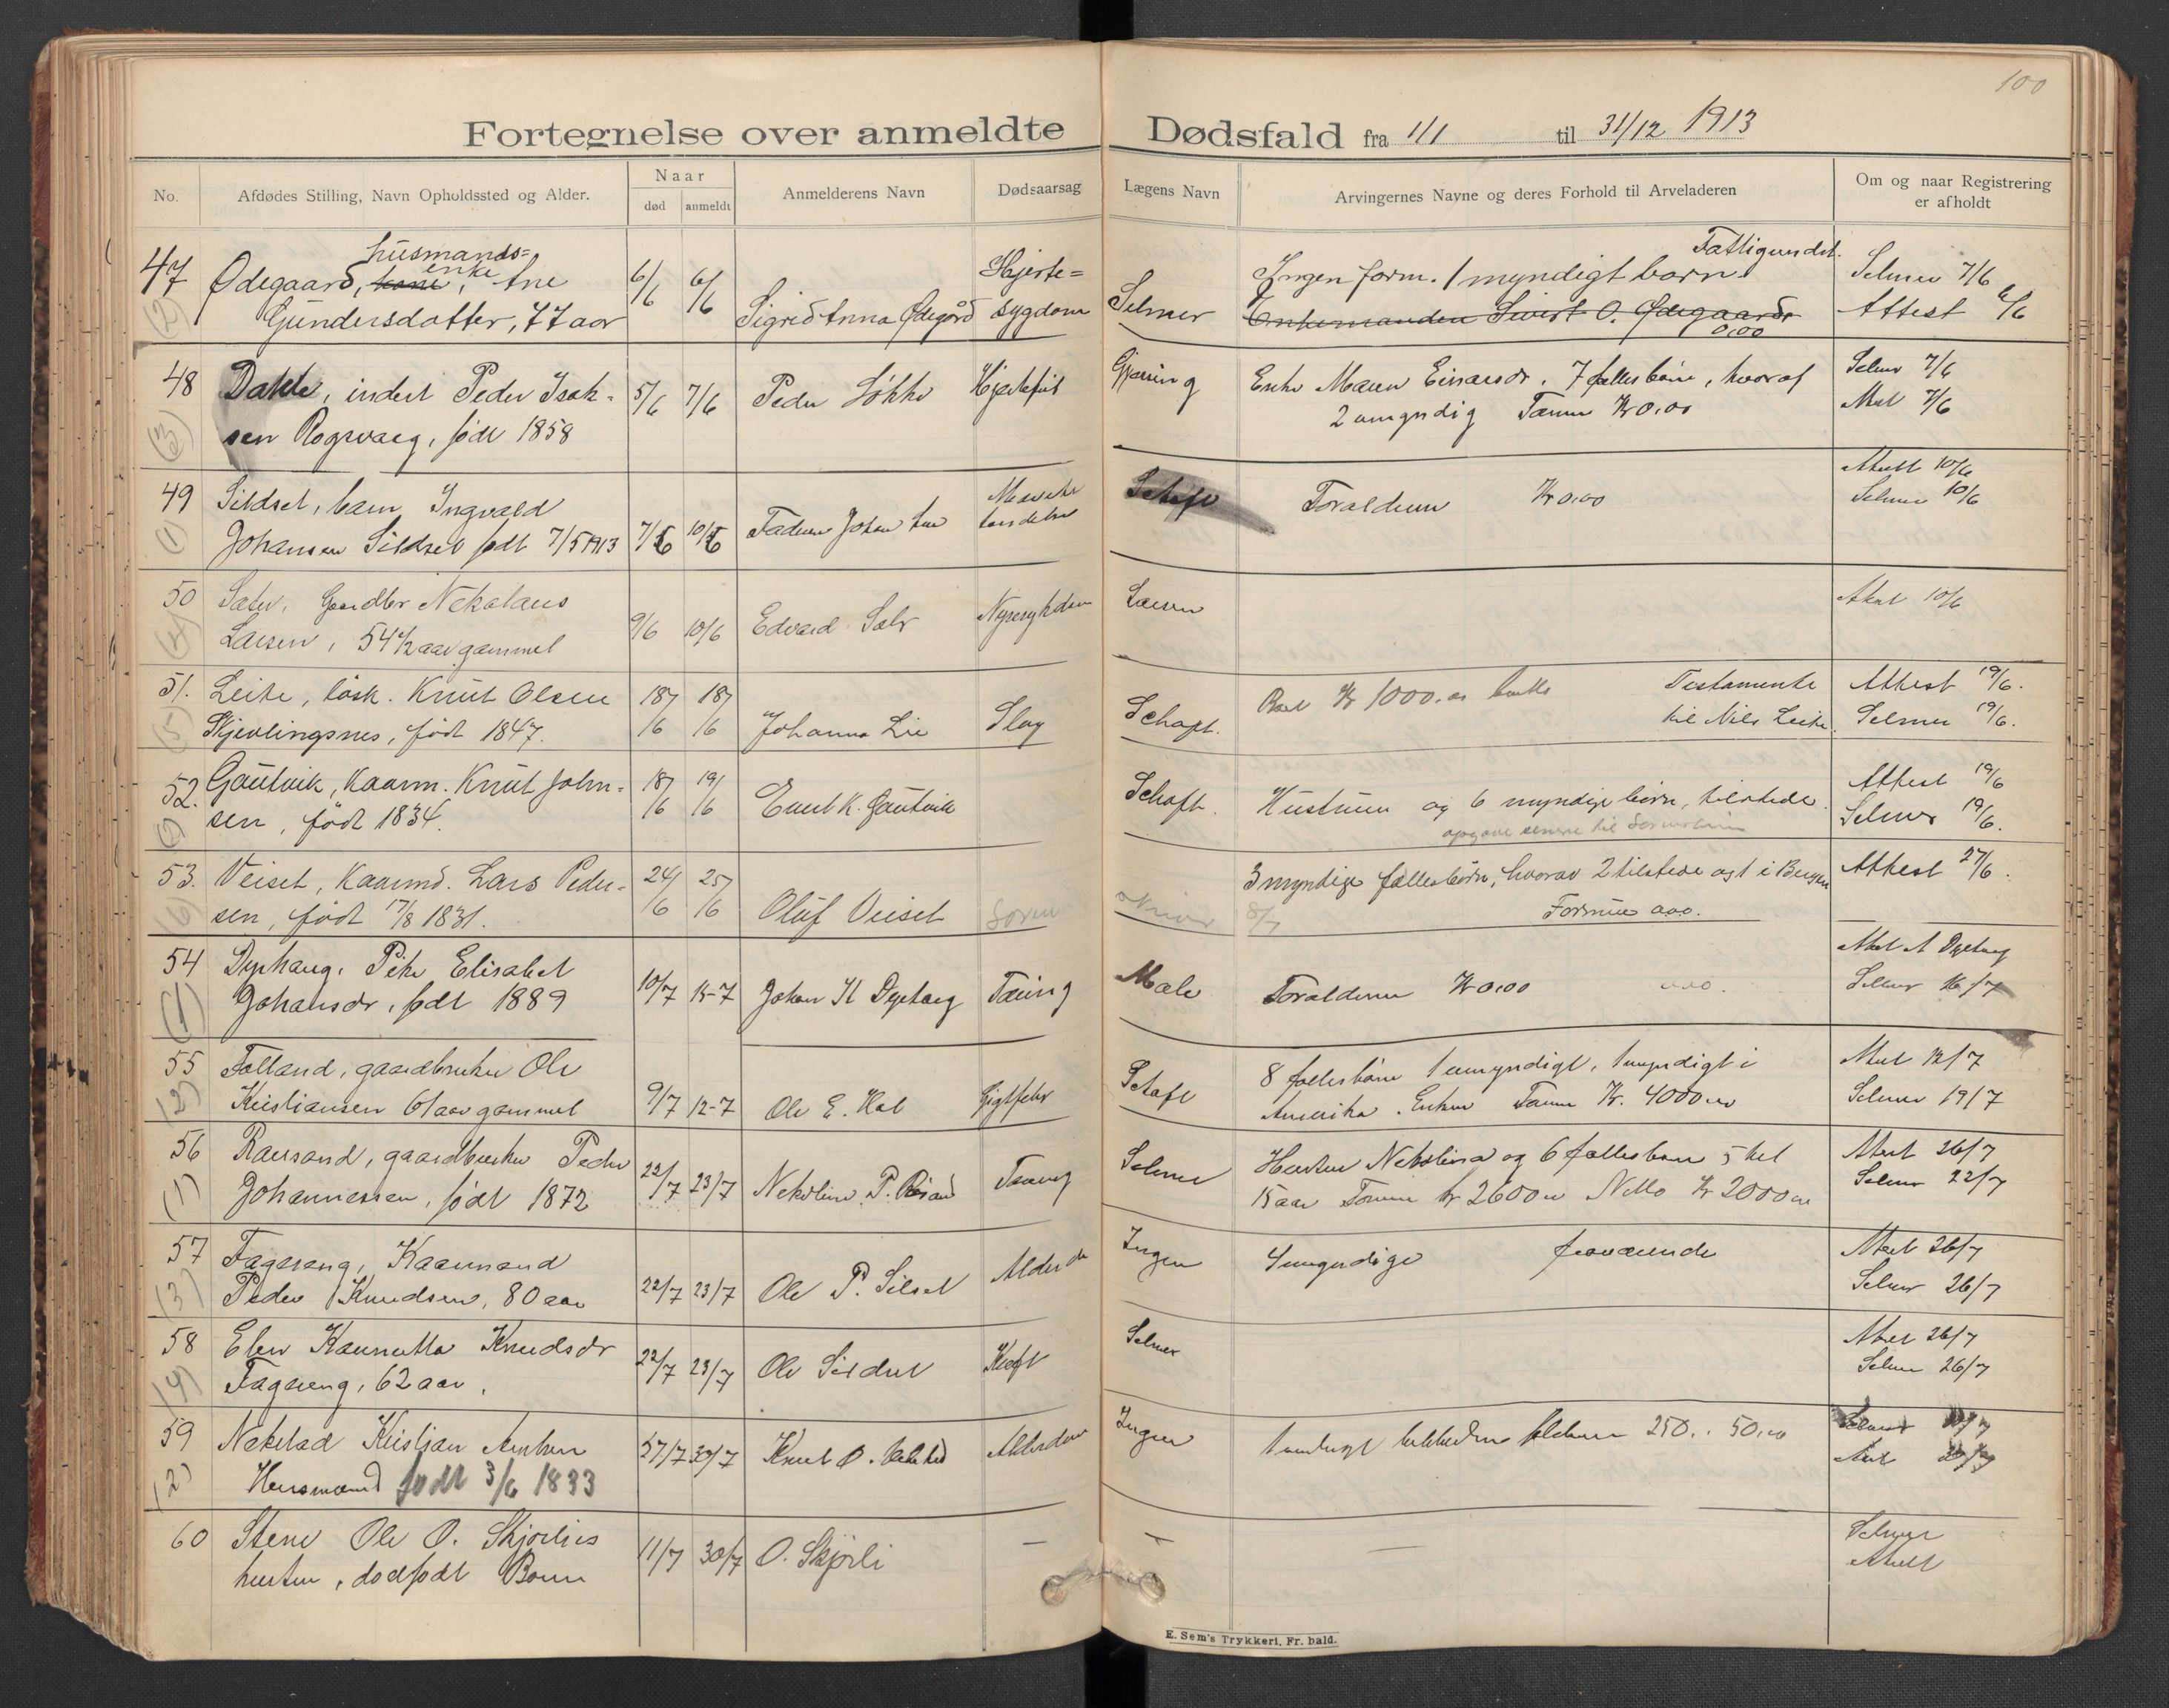 100
Fortegnelse over anmeldte Dødsfald fra 1/1 til 31/12 1913
No.
Afdødes Stilling, Navn Opholdssted og Alder.
Naar
død
anmeldt
Anmelderens Navn
Dødsaarsag
Lægens Navn
Arvingernes Navne og deres Forhold til Arveladeren
Om og naar Registrering
er afholdt
47
husmands=
enke
Ødegaard, kone, Ane
Gundersdatter, 77 aar
(2)
6/6
6/6
Sigrid Anna Ødegård
Hjerte=
sygdom
Selmer
Fattigundst.
Ingen form. 1 myndigt barn
Enkemanden Sivert O. Ødegaard
0,00
Selmer 7/6
Attest 6/6
48
Dahle, inderst Peder Isak-
sen Rogsvaag, født 1858
(3)
5/6
7/6
Peder Løkke
Hjertefeil
Gjæring
Enke Maren Einarsdr. 7 fælles børn, hvoraf
2 umyndig Formue Kr 0,00
Selmer 7/6
7/6
49
Sildset, barn Ingvald
Johansen Sildset født 7/5 1913
(1)
7/6
10/6
Faderen Johan
Schaft
Forældrene Kr 0,00
Attest 10/6
Selmer 10/6
50
Gaardbr Nekolaus
Larsen, 54 1/2 aar gammel
9/6
10/6
Edvard
Nyresykdom
Larsen
10/6
51.
Leite, løsk. Knut Olsen
Skjevlingsnes, født 1847.
(5)
18/6
18/6
Johanna Lie
Slag
Schaft.
Kr 1000.00 brutto
Testamente
til Nils Leite.
Attest 19/6.
Selmer 19/6.
52.
Gautvik, Kaarm. Knut John-
sen, født 1834.
18/6
19/6
Knut K. Gautvik
Schaft.
Hustruen og 6 myndige børn, tilstede.
opgave senere til
Attest 19/6
Selmer 19/6.
53.
Veiset, Kaarmd. Lars Peder-
sen, født 17/8 1831.
(6)
24/6
25/6
Oluf Veiset
3 myndige fællesbørn, hvorav 2 tilstede og 1 i Bergen
Formue 0,00.
8/7
Attest 27/6.
54
Dyrhaug, Elisabet
Johansdr, født 1889
(1)
10/7
15-7
Johan K Dyrhaug
Tæring
Male
Forældrene Kr 0,00
0,00.
Selmer 16/7
55
Folland, gaardbruker Ole
Kristiansen 61 aar gammel
(2)
9/7
12-7
Ole E. Hol
Gigtfeber
Schaft
8 fælles børn 1 umyndigt, 1 myndigt i
Amerika. Enken Formue Kr. 4000,00
12/7
Selmer 19/7
56
Rausand, gaardbruker Peder
Johannessen, født 1872
(1)
22/7
23/7
Nekoline P. Rausand
Tæring
Selmer
Hustru Nekoline og 6 fælles børn
15 aar Formue kr 2600,00 Netto Kr 2000,00
Attest 26/7
Selmer 22/7
57
Fagereng, Kaarmand
Peder Knudsen, 80 aar
(3)
22/7
23/7
Ole P. Silset
Alderdom
Ingen
4 myndige fraværende
Attest 26/7
Selmer 26/7
58
Knudsdr
Fagereng, 62 aar.
(4)
22/7
23/7
Ole Sildset
Kræft
Selmer
Attest 26/7
Selmer 26/7
59
Kristian
Husmand født 3/6 1833
(2)
27/7
30/7
Knut O.
Alderdom
Ingen
250. 50,00
60
Stene Ole O. Skjørlies
hustru, dødfødt Barn
11/7
30/7
O. Skjørli
—
—
—
Selmer
Attest
E. Sem's Trykkeri, Fr.hald.